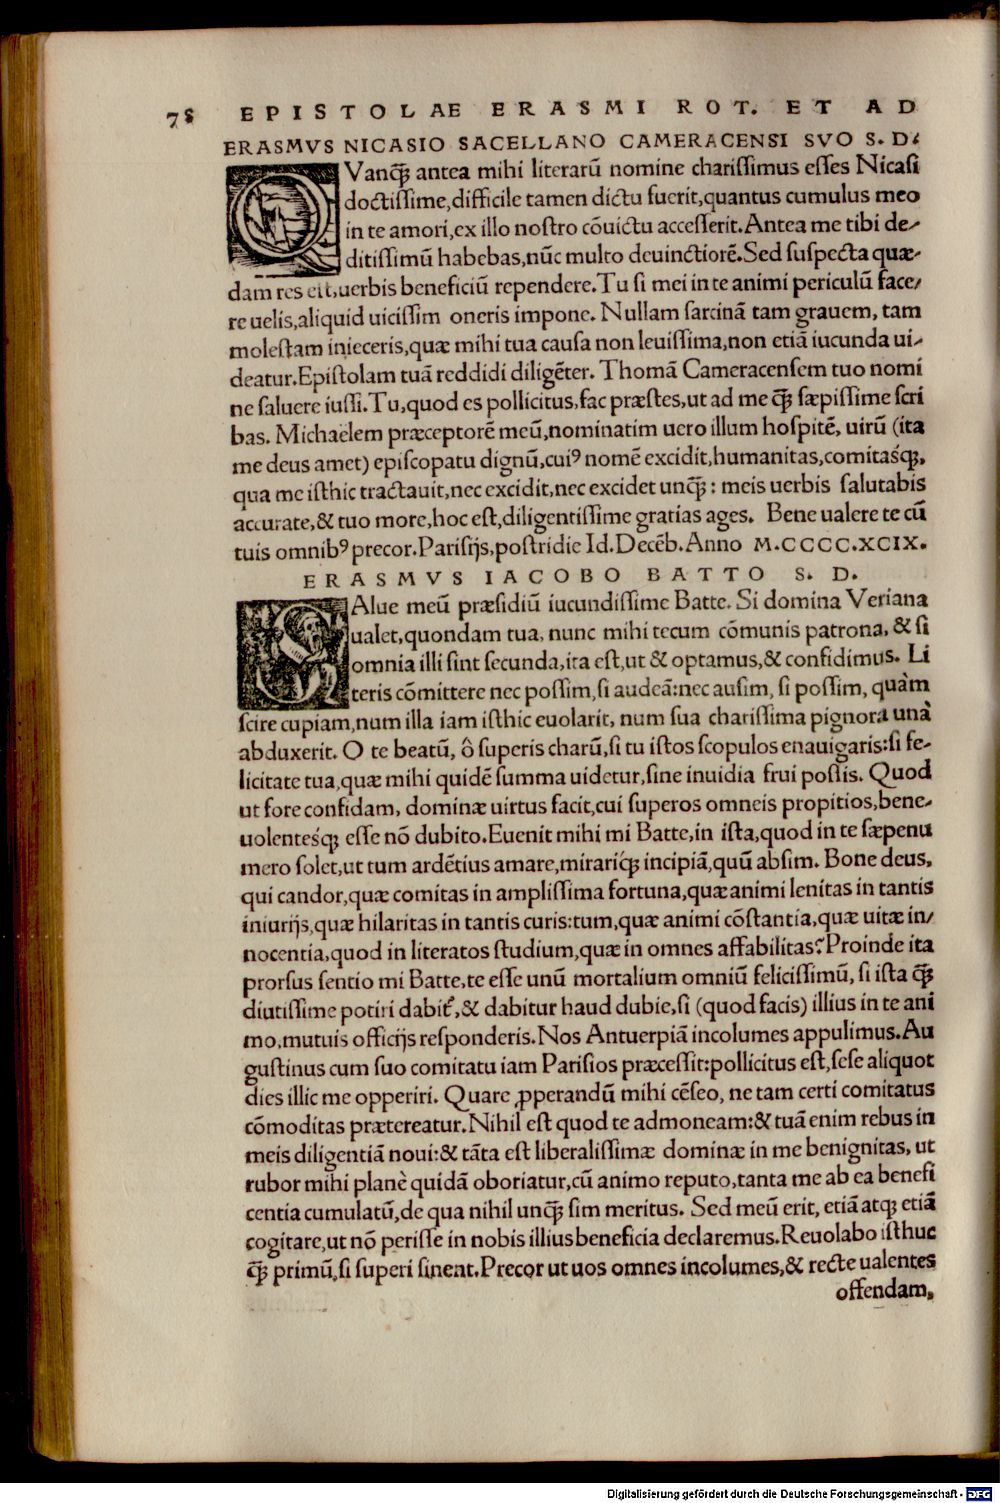 78 EPISTOLAE ERASMI ROT. ET AD
ERASMVS NICASIO SACELLANO CAMERACENSI SVO S. D.
QVanꝗ̃ antea mihi literarũ nomine chariſſimus eſſes Nicaſi
doctiſſime,difficile tamen dictu fuerit,quantus cumulus meo
in te amori,ex illo noſtro cõuictu acceſſerit.Antea me tibi de⸗
ditiſſimũ habebas,nũc multo deuinctiorẽ.Sed ſuſpecta quæ⸗
dam res eſt,uerbis beneficiũ rependere.Tu ſi mei in te animi periculũ face⸗
re uelis,aliquid uiciſſim oneris impone. Nullam ſarcinã tam grauem, tam
moleſtam inieceris,quæ mihi tua cauſa non leuiſſima,non etiã iucunda ui⸗
deatur.Epiſtolam tuã reddidi diligẽter. Thomã Cameracenſem tuo nomi
ne ſaluere iuſſi.Tu,quod es pollicitus,fac præſtes,ut ad me ꝗ̃ ſæpiſſime ſcri
bas. Michaelem præceptorẽ meũ,nominatim uero illum hoſpitẽ, uirũ (ita
me deus amet) epiſcopatu dignũ,cuiꝰ nomẽ excidit,humanitas,comitasq́ꝫ,
qua me iſthic tractauit,nec excidit,nec excidet unꝗ̃: meis uerbis ſalutabis
accurate,& tuo more,hoc eſt,diligentiſſime gratias ages. Bene ualere te cũ
tuis omnibꝰ precor.Pariſijs,poſtridie Id.Decẽb.Anno M.CCCC.XCIX.
ERASMVS IACOBO BATTO S. D.
SAlue meũ præſidiũ iucundiſſime Batte. Si domina Veriana
ualet,quondam tua, nunc mihi tecum cõmunis patrona, & ſi
omnia illi ſint ſecunda,ita eſt,ut & optamus,& confidimus. Li
teris cõmittere nec poſſim,ſi audeã:nec auſim, ſi poſſim, quàm
ſcire cupiam,num illa iam iſthic euolarit, num ſua chariſſima pignora unà
abduxerit. O te beatũ, ô ſuperis charũ,ſi tu iſtos ſcopulos enauigaris:ſi fe⸗
licitate tua,quæ mihi quidẽ ſumma uidetur,ſine inuidia frui poſſis. Quod
ut fore confidam, dominæ uirtus facit,cui ſuperos omneis propitios,bene⸗
uolentesq́ꝫ eſſe nõ dubito.Euenit mihi mi Batte,in iſta,quod in te ſæpenu
mero ſolet,ut tum ardẽtius amare,mirariq́ꝫ incipiã,quũ abſim. Bone deus,
qui candor,quæ comitas in ampliſſima fortuna,quæ animi lenitas in tantis
iniurijs,quæ hilaritas in tantis curis:tum,quæ animi cõſtantia,quæ uitæ in⸗
nocentia,quod in literatos ſtudium,quæ in omnes affabilitas? Proinde ita
prorſus ſentio mi Batte,te eſſe unũ mortalium omniũ feliciſſimũ, ſi iſta ꝗ̃
diutiſſime potiri dabit᷑,& dabitur haud dubie,ſi (quod facis) illius in te ani
mo,mutuis officijs reſponderis.Nos Antuerpiã incolumes appulimus.Au
guſtinus cum ſuo comitatu iam Pariſios præceſſit:pollicitus eſt,ſeſe aliquot
dies illic me opperiri. Quare ꝓperandũ mihi cẽſeo, ne tam certi comitatus
cõmoditas prætereatur.Nihil eſt quod te admoneam:& tuã enim rebus in
meis diligentiã noui:& tãta eſt liberaliſſimæ dominæ in me benignitas, ut
rubor mihi planè quidã oboriatur,cũ animo reputo,tanta me ab ea benefi
centia cumulatũ,de qua nihil unꝗ̃ ſim meritus. Sed meũ erit, etiã atqꝫ etiã
cogitare,ut nõ periſſe in nobis illius beneficia declaremus.Reuolabo iſthuc
ꝗ̃ primũ,ſi ſuperi ſinent.Precor ut uos omnes incolumes,& recte ualentes
offendam,
Digitalisierung gefördert durch die Deutsche Forschungsgemeinschaft - DFG